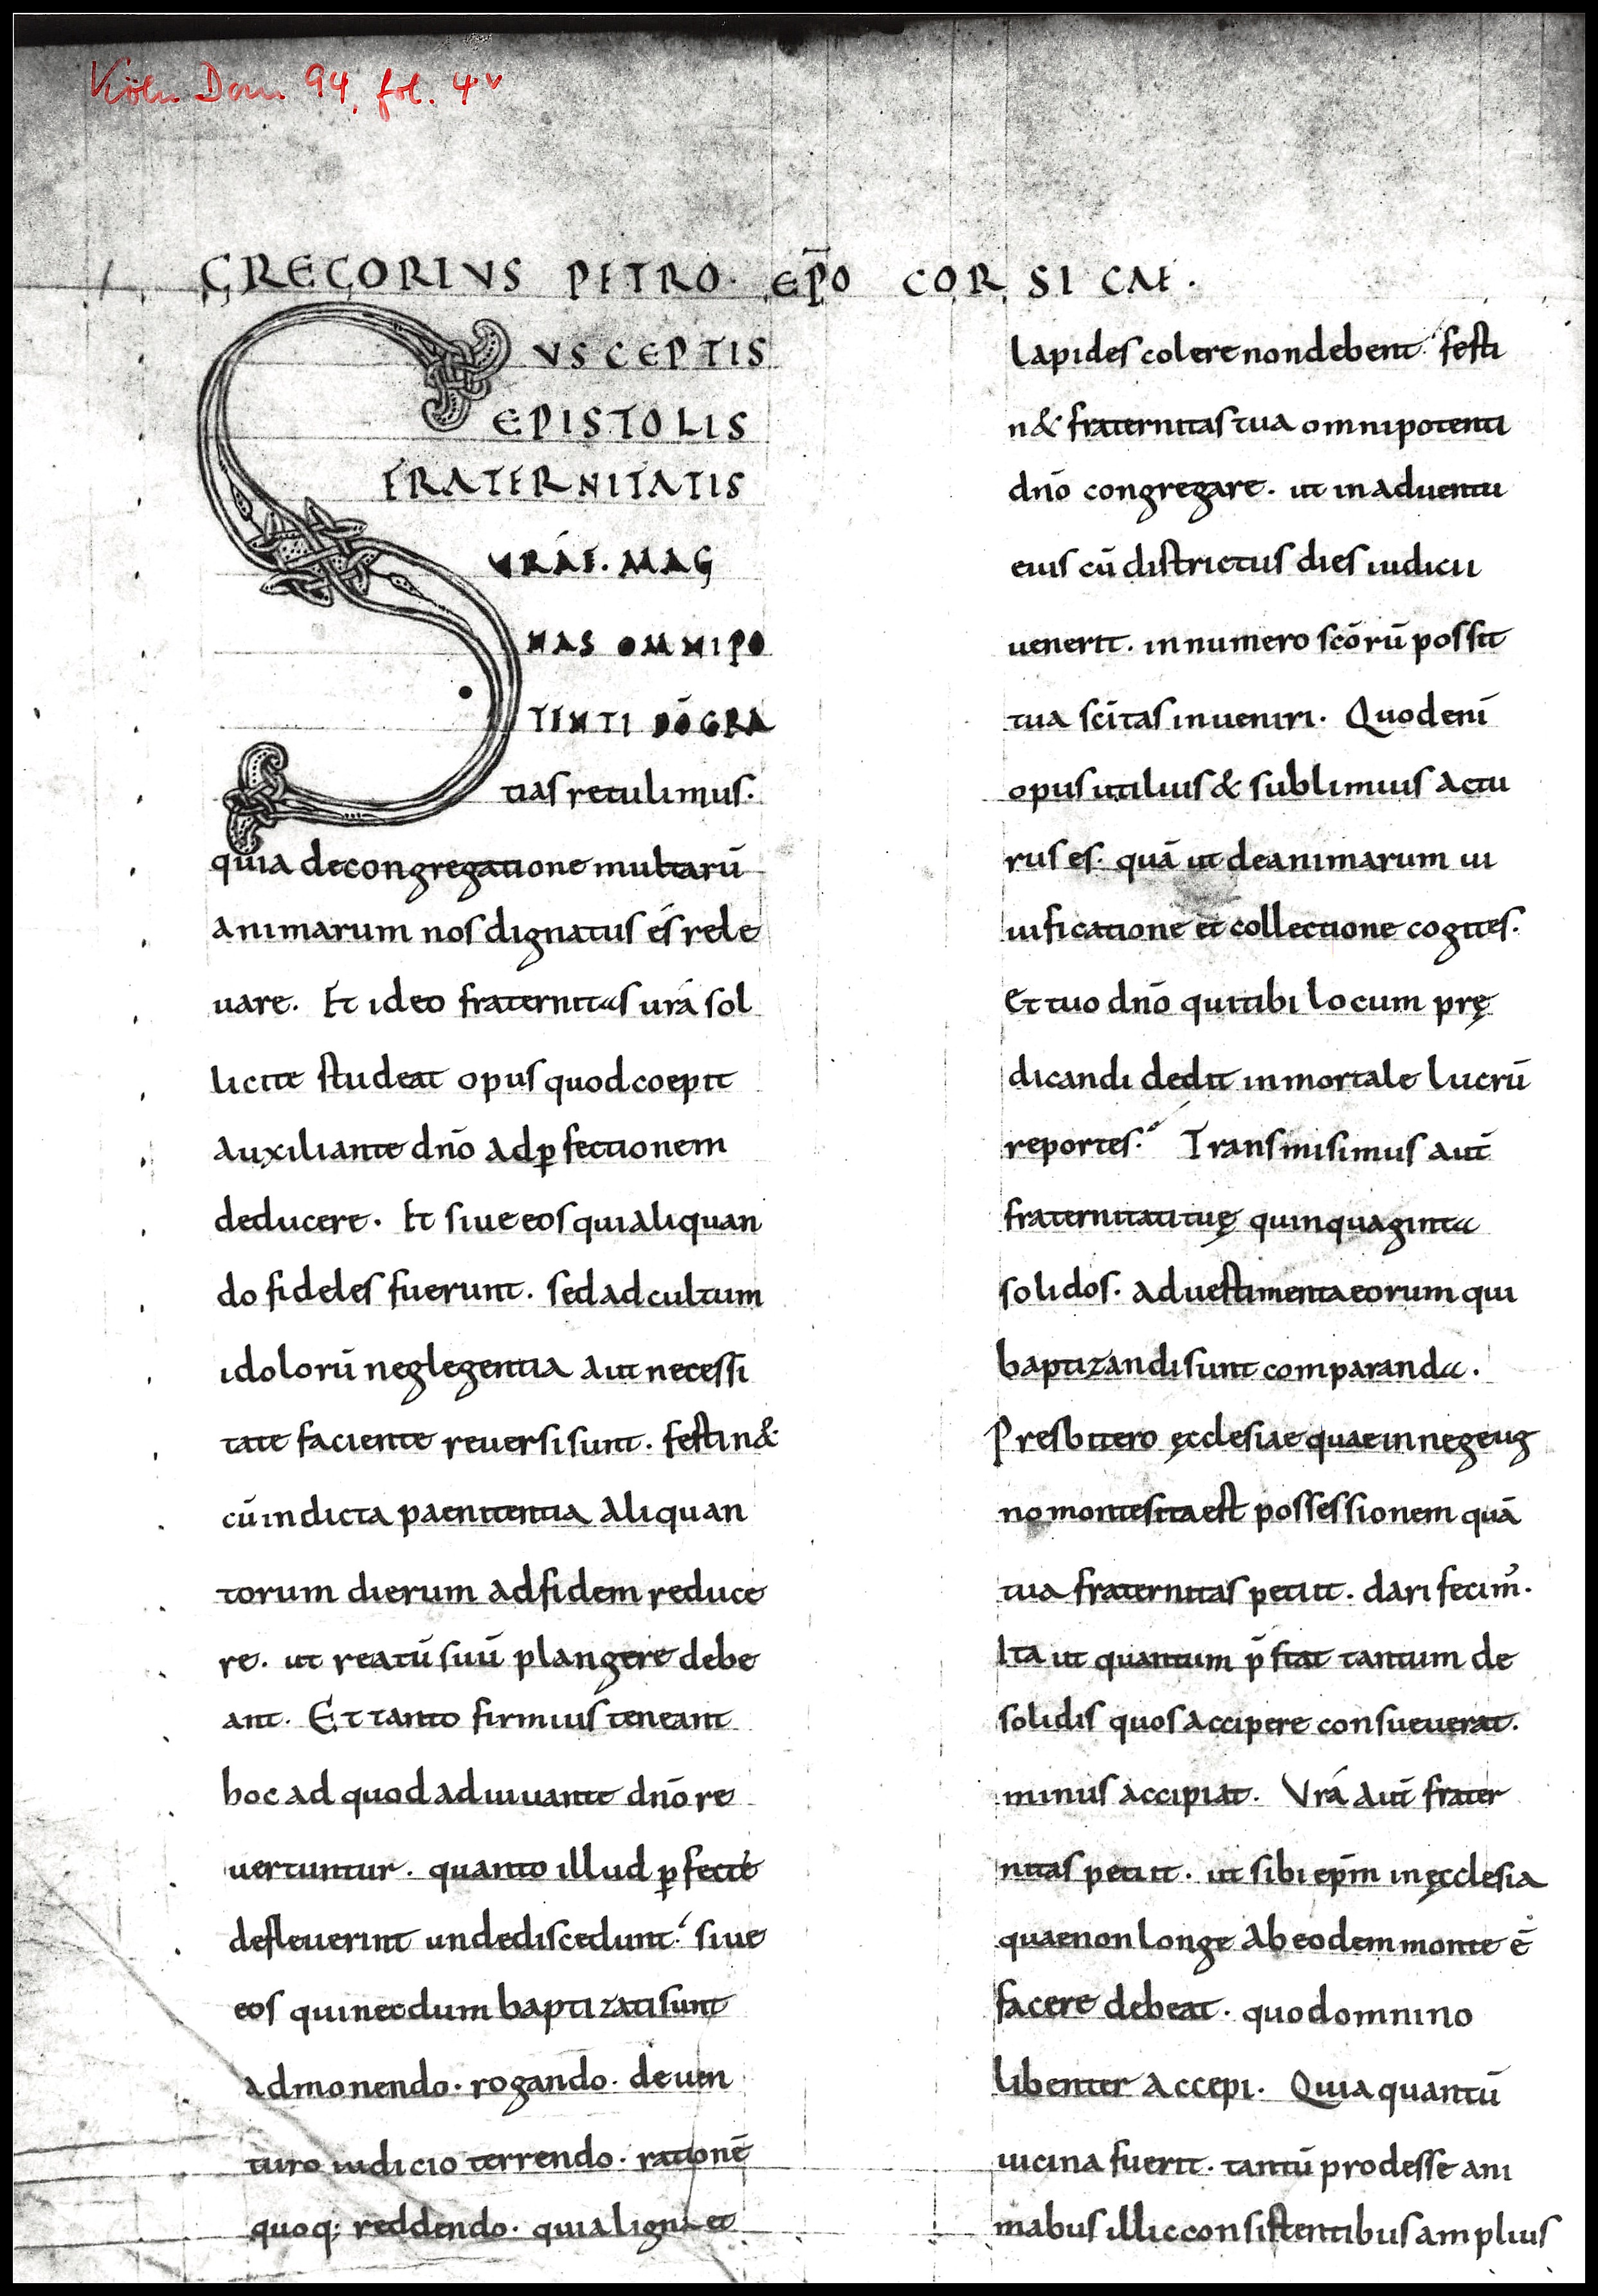 Köln Dom 94, fol. 4v
GREGORIVS PETRO. EP̄O CORSICAE.
SVSCEPTIS
EPISTOLIS
FRATERNITATIS
VRĀE. MAG
NAS OMNIPO
TENTI DŌ GRA
tias retulimus.
quia de congregatione multarū
animarum nos dignatus ēs rele
uare. Et ideo fraternitas urā sol
licite studeat opus quod coepit
auxiliante dnō ad ꝑfectionem
deducere. Et siue eos qui aliquan
do fideles fuerunt. sed ad cultum
idolorū neglegentia aut necessi
tate faciente reuersi sunt. festin&
cū indicta paenitentia aliquan
torum dierum ad fidem reduce
re. ut reatū suū plangere debe
ant. Et tanto firmius teneant
hoc ad quod adiuuante dnō re
uertuntur. quanto illud ꝑfecte
defleuerint unde discedunt. siue
eos qui necdum baptizati sunt
admonendo. rogando. de uen
turo iudicio terrendo. rationē
quoq; reddendo. quia ligna et
lapides colere non debent. festi
n& fraternitas tua omnipotenti
dnō congregare. ut in aduentu
eius cū districtus dies iudicii
uenerit. in numero scōrū possit
tua scītas inueniri. Quod enī
opus utilius & sublimius actu
rus es. quā ut de animarum ui
uificatione et collectione cogites.
Et tuo dnō qui tibi locum prę
dicandi dedit inmortale lucrū
reportes. Transmisimus aut̄
fraternitati tuę quinquaginta
solidos. ad uestimenta eorum qui
baptizandi sunt comparanda.
Presbitero ęcclesiae quae in negeug
no monte sita est possessionem quā
tua fraternitas petiit. dari fecim᾽.
Ita ut quantum p̄stat tantum de
solidis quos accipere consueuerat.
minus accipiat. Vrā aut̄ frater
nitas petiit. ut sibi ep̄m in ęcclesia
quae non longe ab eodem monte ē
facere debeat. quod omnino
libenter accepi. Quia quantū
uicina fuerit. tantū prodesse ani
mabus illic consistentibus amplius